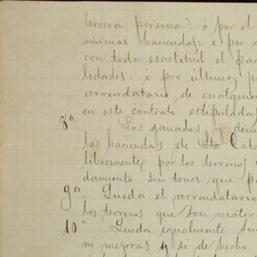 tercera persona: ó por el
mismas haciendas: ó por
con toda exactitud el pa
lidades: ó por último, p
arrendatario, de cualquier
en este contrato estipulada
8ª Los ganados y dem
las haciendas de Sta Cata
libremente, por los terrenos
damiento sin tener que p
9ª Queda el arrendatario
los terrenos que son mater
10ª Queda igualmente
ni mejoras y si de hecho